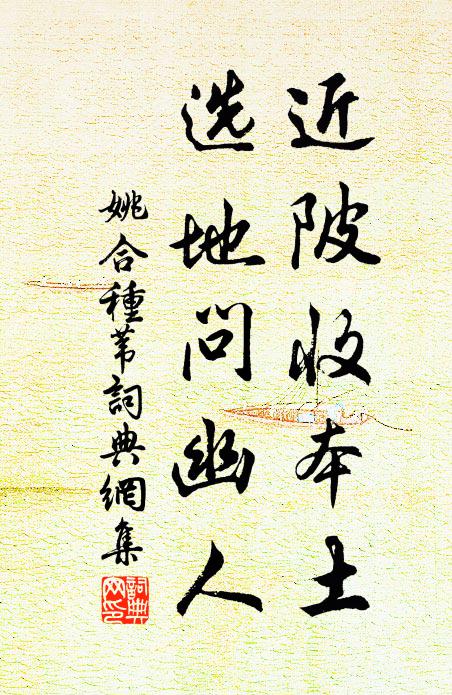 近陂收本土
选地问幽人
姚合種苇詞典網集
詞典
网印